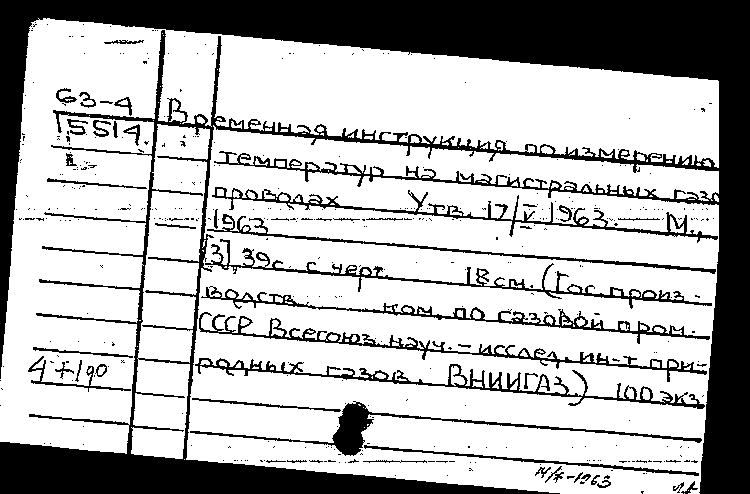 63-4
15514
Временная инструкция по измерению
температур на магистральных газо
проводах Утв. 17/V 1963. М.,
1963
[3], 39с. с черт. 18см. (Гос. произ-
водств. ком. по газовой пром.
СССР Всесоюз. науч.-исслед. ин-т при-
родных газов. ВНИИГАЗ.) 100 экз
14/X-1963